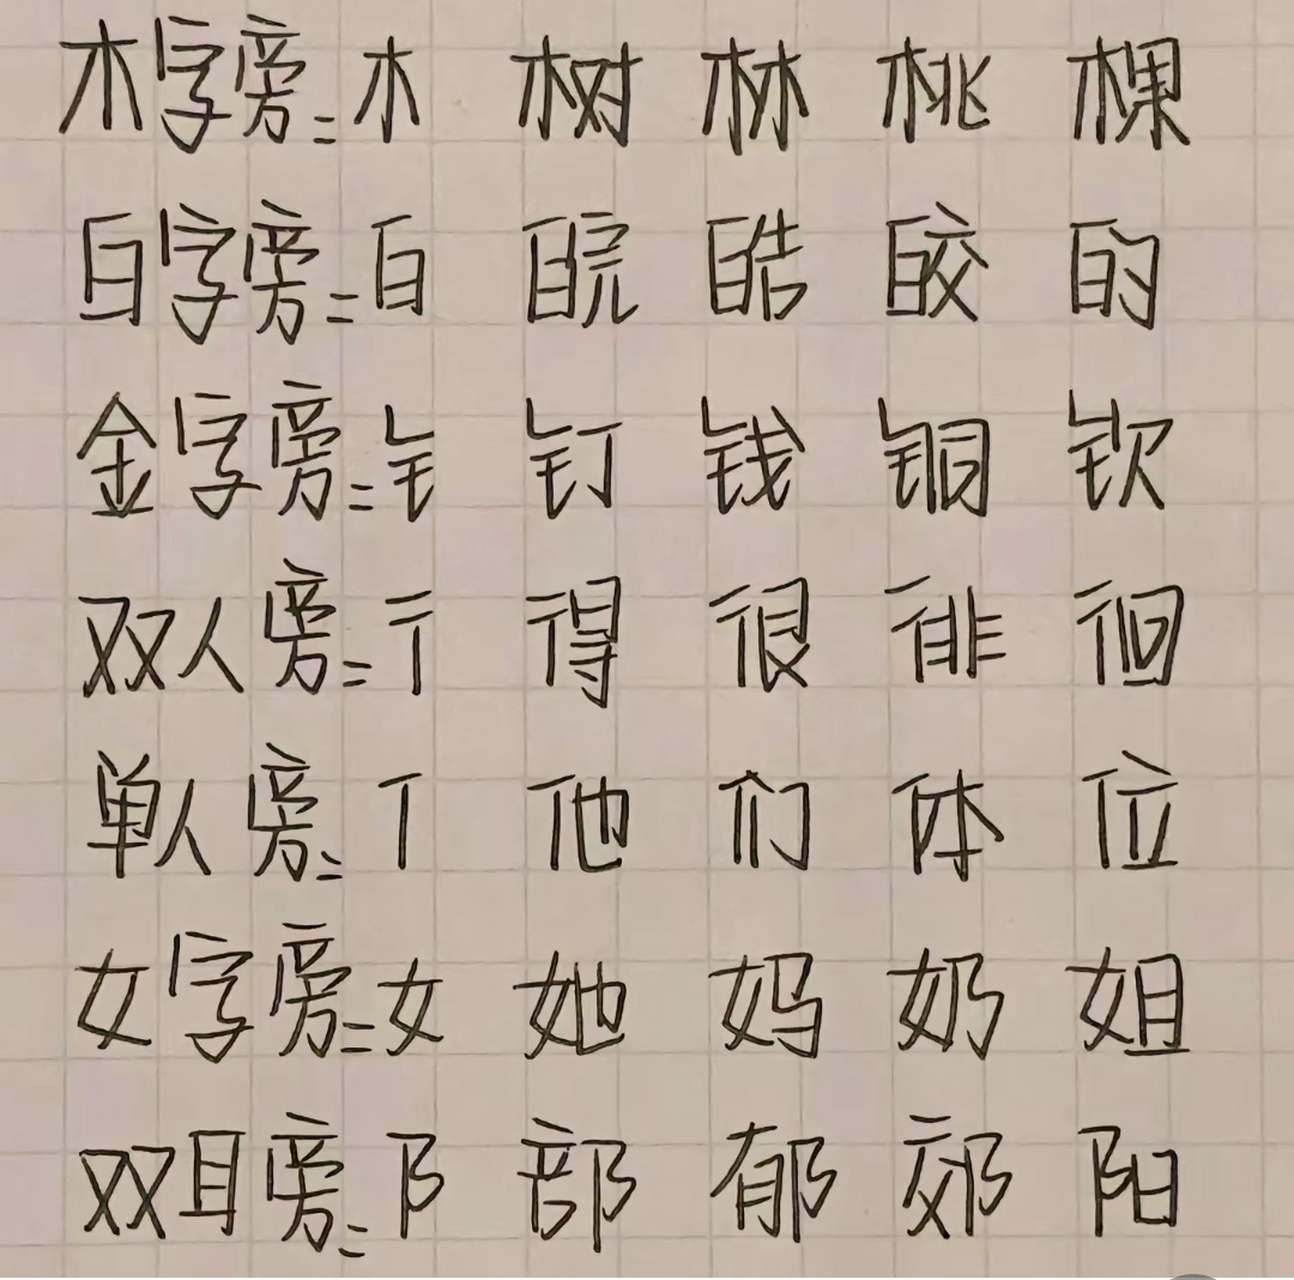 木字旁=木 树 林 桃 棵
白字旁=白 皖 皓 皎 的
金字旁=钅 钉 钱 铜 钦
双人旁=彳 得 很 徘 徊
单人旁=亻 他 们 体 位
女字旁=女 她 妈 奶 姐
双耳旁=阝 部 郁 郊 阳